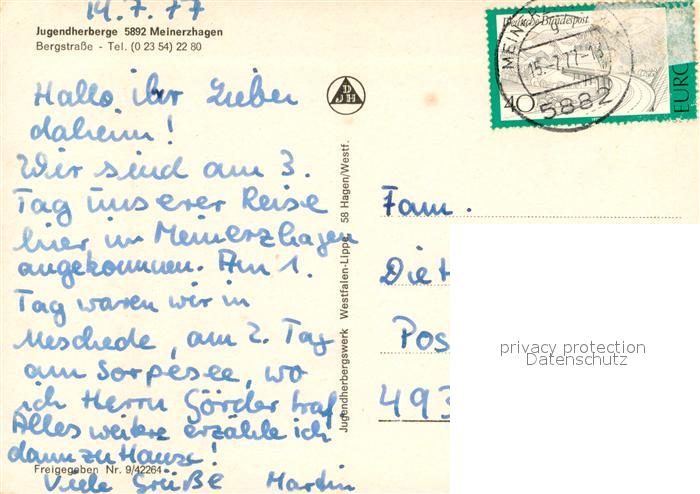 14.7.77
Jugendherberge 5892 Meinerzhagen
Bergstraße - Tel. (0 23 54) 22 80
Hallo ihr Lieben
daheim!
Wir sind am 3.
Tag unserer Reise
hier in Meinerzhagen
angekommen. Am 1.
Tag waren wir in
Meschede, am 2. Tag
am Sorpesee, wo
ich Herrn Görder traf.
Alles weitere erzähle ich
dann zu Hause!
Freigegeben Nr. 9/42264
Viele Grüße Martin
DJH
Jugendherbergswerk Westfalen-Lippe, 58 Hagen/Westf.
Deutsche Bundespost
40
EURO
15.-7.77-18
5882
Fam.
Diet
Pos
493
privacy protection
Datenschutz